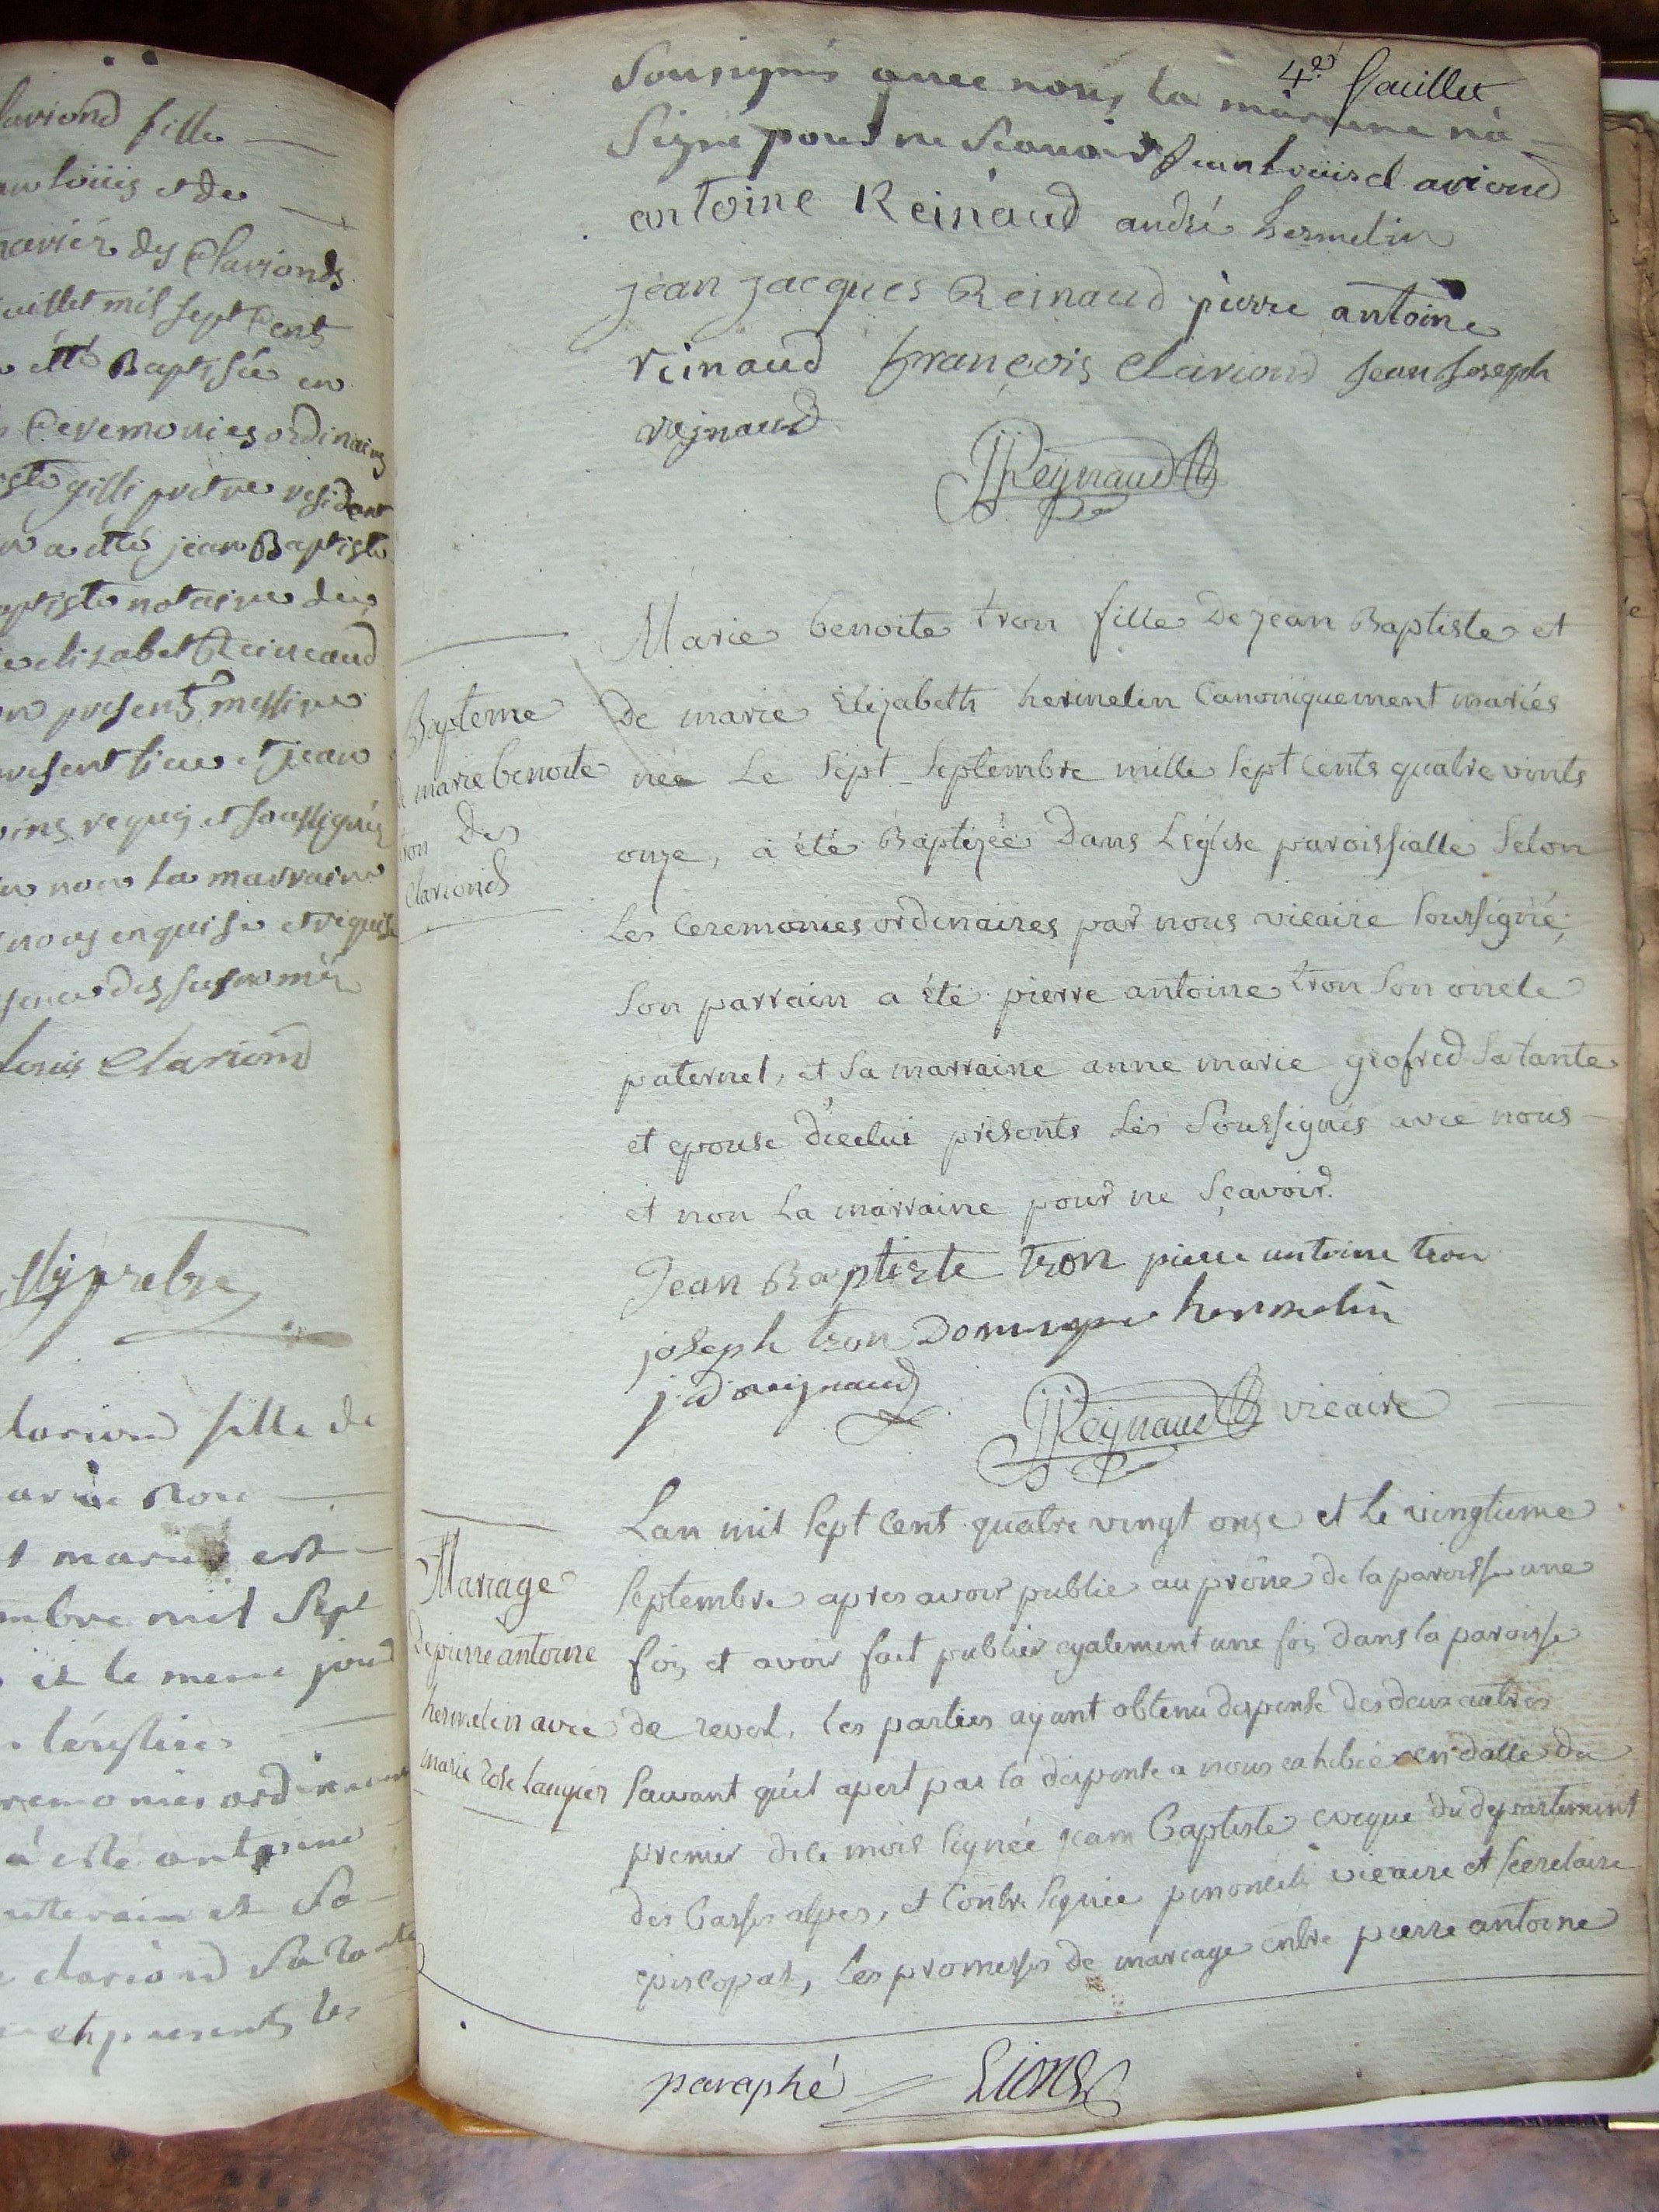 clariond fille
louis et de
xavier des clarionds
juillet mil sept cents
été Baptisée en
Ceremonies ordinaires
gilli pretre residant
a étté jean Baptiste
notaire de
elizabet Reineaud
present messire
present lieu et jean
requis et soussignés
non la marraine
enquise et requise
des susnomés
louis clariond
prebre
clariond fille de
marie Rose
mariés est
mil sept
et le meme jour
l'eglise
ceremonies ordinaires
a esté antoine
uterain et sa
clariond sa tante
presents les
4e feuillet
Sousignés avec nous la marraine na
Signé pour ne scavoir jean louis clariond
antoine Reinaud andré hermelin
jean jacques Reinaud pierre antoine
reinaud françois clariond jean joseph
reynaud
JJReynaud
Bapteme
marie benoite
tron des
Clarionds
Marie benoite tron fille de jean Baptiste et
de marie Elizabeth hermelin Canoniquement mariés
née Le sept Septembre mille sept cents quatre vints
onze, a été Baptizée dans L'église paroissialle selon
Les Ceremonies ordinaires par nous vicaire soussigné,
son parrain a été pierre antoine tron son oncle
paternel, et sa marraine anne marie geofred sa tante
et epouse d'icelui présents Les soussignés avec nous
et non La marraine pour ne sçavoir.
Jean Baptiste tron pierre antoine tron
joseph tron Dominique hermelin
reignaud
JJReynaud vicaire
Mariage
de pierre antoine
hermelin avec
marie rose laugier
Lan mil sept cent quatre vingt onze et le vingtieme
septembre apres avoir publie au prône de la paroisse une
fois, et avoir fait publier egalement une fois dans la paroisse
de revel, les parties ayant obtenu dispense des deux autres
suivant qu'il apert par la dispense a nous exhibée en datte du
premier de ce mois signée jean baptiste eveque du departement
des basses alpes, et contre signée vicaire et secretaire
episcopal, les promesses de mariage entre pierre antoine
paraphé Lions